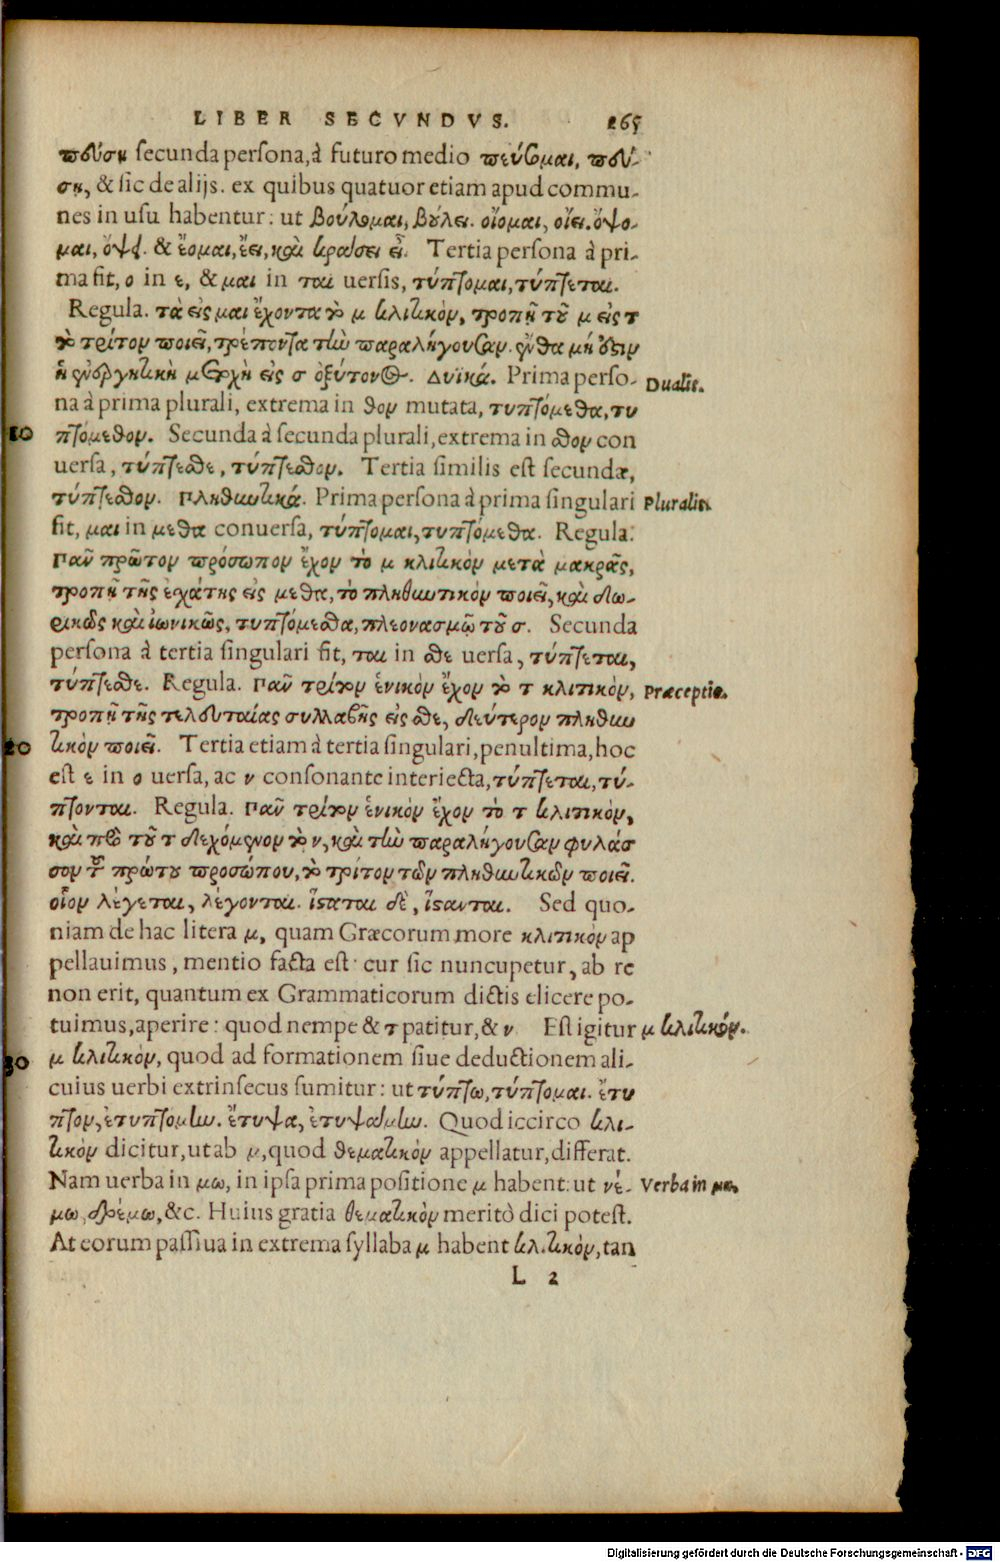 LIBER SECVNDVS. 265
πεύση secunda persona, à futuro medio πεύσομαι, πεύ-
ση, & sic de alijs. ex quibus quatuor etiam apud commu-
nes in usu habentur: ut βούλομαι, βούλει. οἴομαι, οἴει. ὄψο-
μαι, ὄψει. & ἔομαι, ἔει, καὶ κράσει εἶ. Tertia persona à pri-
ma fit, ο in ε, & μαι in ται uersis, τύπτομαι, τύπτεται.
Regula. τὰ εἰς μαι ἔχοντα τὸ μ κλιτικὸν, τροπῇ τοῦ μ εἰς τ
τὸ τρίτον ποιεῖ, τρέποντα τὴν παραλήγουσαν. ἔνθα μή ἐστιν
ἡ ἐνεργητικὴ μετοχὴ εἰς σ ὀξύτονος. Δυϊκά. Prima perso-
Dualis.
na à prima plurali, extrema in θον mutata, τυπτόμεθα, τυ
10 πτόμεθον. Secunda à secunda plurali, extrema in σθον con
uersa, τύπτεσθε, τύπτεσθον. Tertia similis est secundæ,
τύπτεσθον. Πληθυντικά. Prima persona à prima singulari
Pluralis.
fit, μαι in μεθα conuersa, τύπτομαι, τυπτόμεθα. Regula:
Πᾶν πρῶτον πρόσωπον ἔχον τὸ μ κλιτικὸν μετὰ μακρᾶς,
τροπῇ τῆς ἐσχάτης εἰς μεθα, τὸ πληθυντικὸν ποιεῖ, καὶ δω-
ρικῶς καὶ ἰωνικῶς, τυπτόμεσθα, πλεονασμῷ τοῦ σ. Secunda
persona à tertia singulari fit, ται in σθε uersa, τύπτεται,
τύπτεσθε. Regula. Πᾶν τρίτον ἑνικὸν ἔχον τὸ τ κλιτικὸν,
Præceptio.
τροπῇ τῆς τελευταίας συλλαβῆς εἰς σθε, δεύτερον πληθυν
20 τικὸν ποιεῖ. Tertia etiam à tertia singulari, penultima, hoc
est ε in ο uersa, ac ν consonante interiecta, τύπτεται, τύ-
πτονται. Regula. Πᾶν τρίτον ἑνικὸν ἔχον τὸ τ κλιτικὸν,
καὶ πρὸ τοῦ τ δεχόμενον τὸ ν, καὶ τὴν παραλήγουσαν φυλάσ
σον τοῦ πρώτου προσώπου, τὸ τρίτον τῶν πληθυντικῶν ποιεῖ.
οἷον λέγεται, λέγονται. ἵσταται δὲ, ἵστανται. Sed quo-
niam de hac litera μ, quam Græcorum more κλιτικὸν ap
pellauimus, mentio facta est: cur sic nuncupetur, ab re
non erit, quantum ex Grammaticorum dictis elicere po-
tuimus, aperire: quod nempe & τ patitur, & ν Est igitur
μ κλιτικόν.
30 μ κλιτικὸν, quod ad formationem siue deductionem ali-
cuius uerbi extrinsecus sumitur: ut τύπτω, τύπτομαι. ἔτυ
πτον, ἐτυπτόμην. ἔτυψα, ἐτυψάμην. Quod iccirco κλι-
τικὸν dicitur, ut ab μ, quod θεματικὸν appellatur, differat.
Nam uerba in μω, in ipsa prima positione μ habent: ut νέ-
Verba in μω.
μω, δρέμω, &c. Huius gratia θεματικὸν meritò dici potest.
At eorum passiua in extrema syllaba μ habent κλιτικὸν, tan
L 2
Digitalisierung gefördert durch die Deutsche Forschungsgemeinschaft - DFG